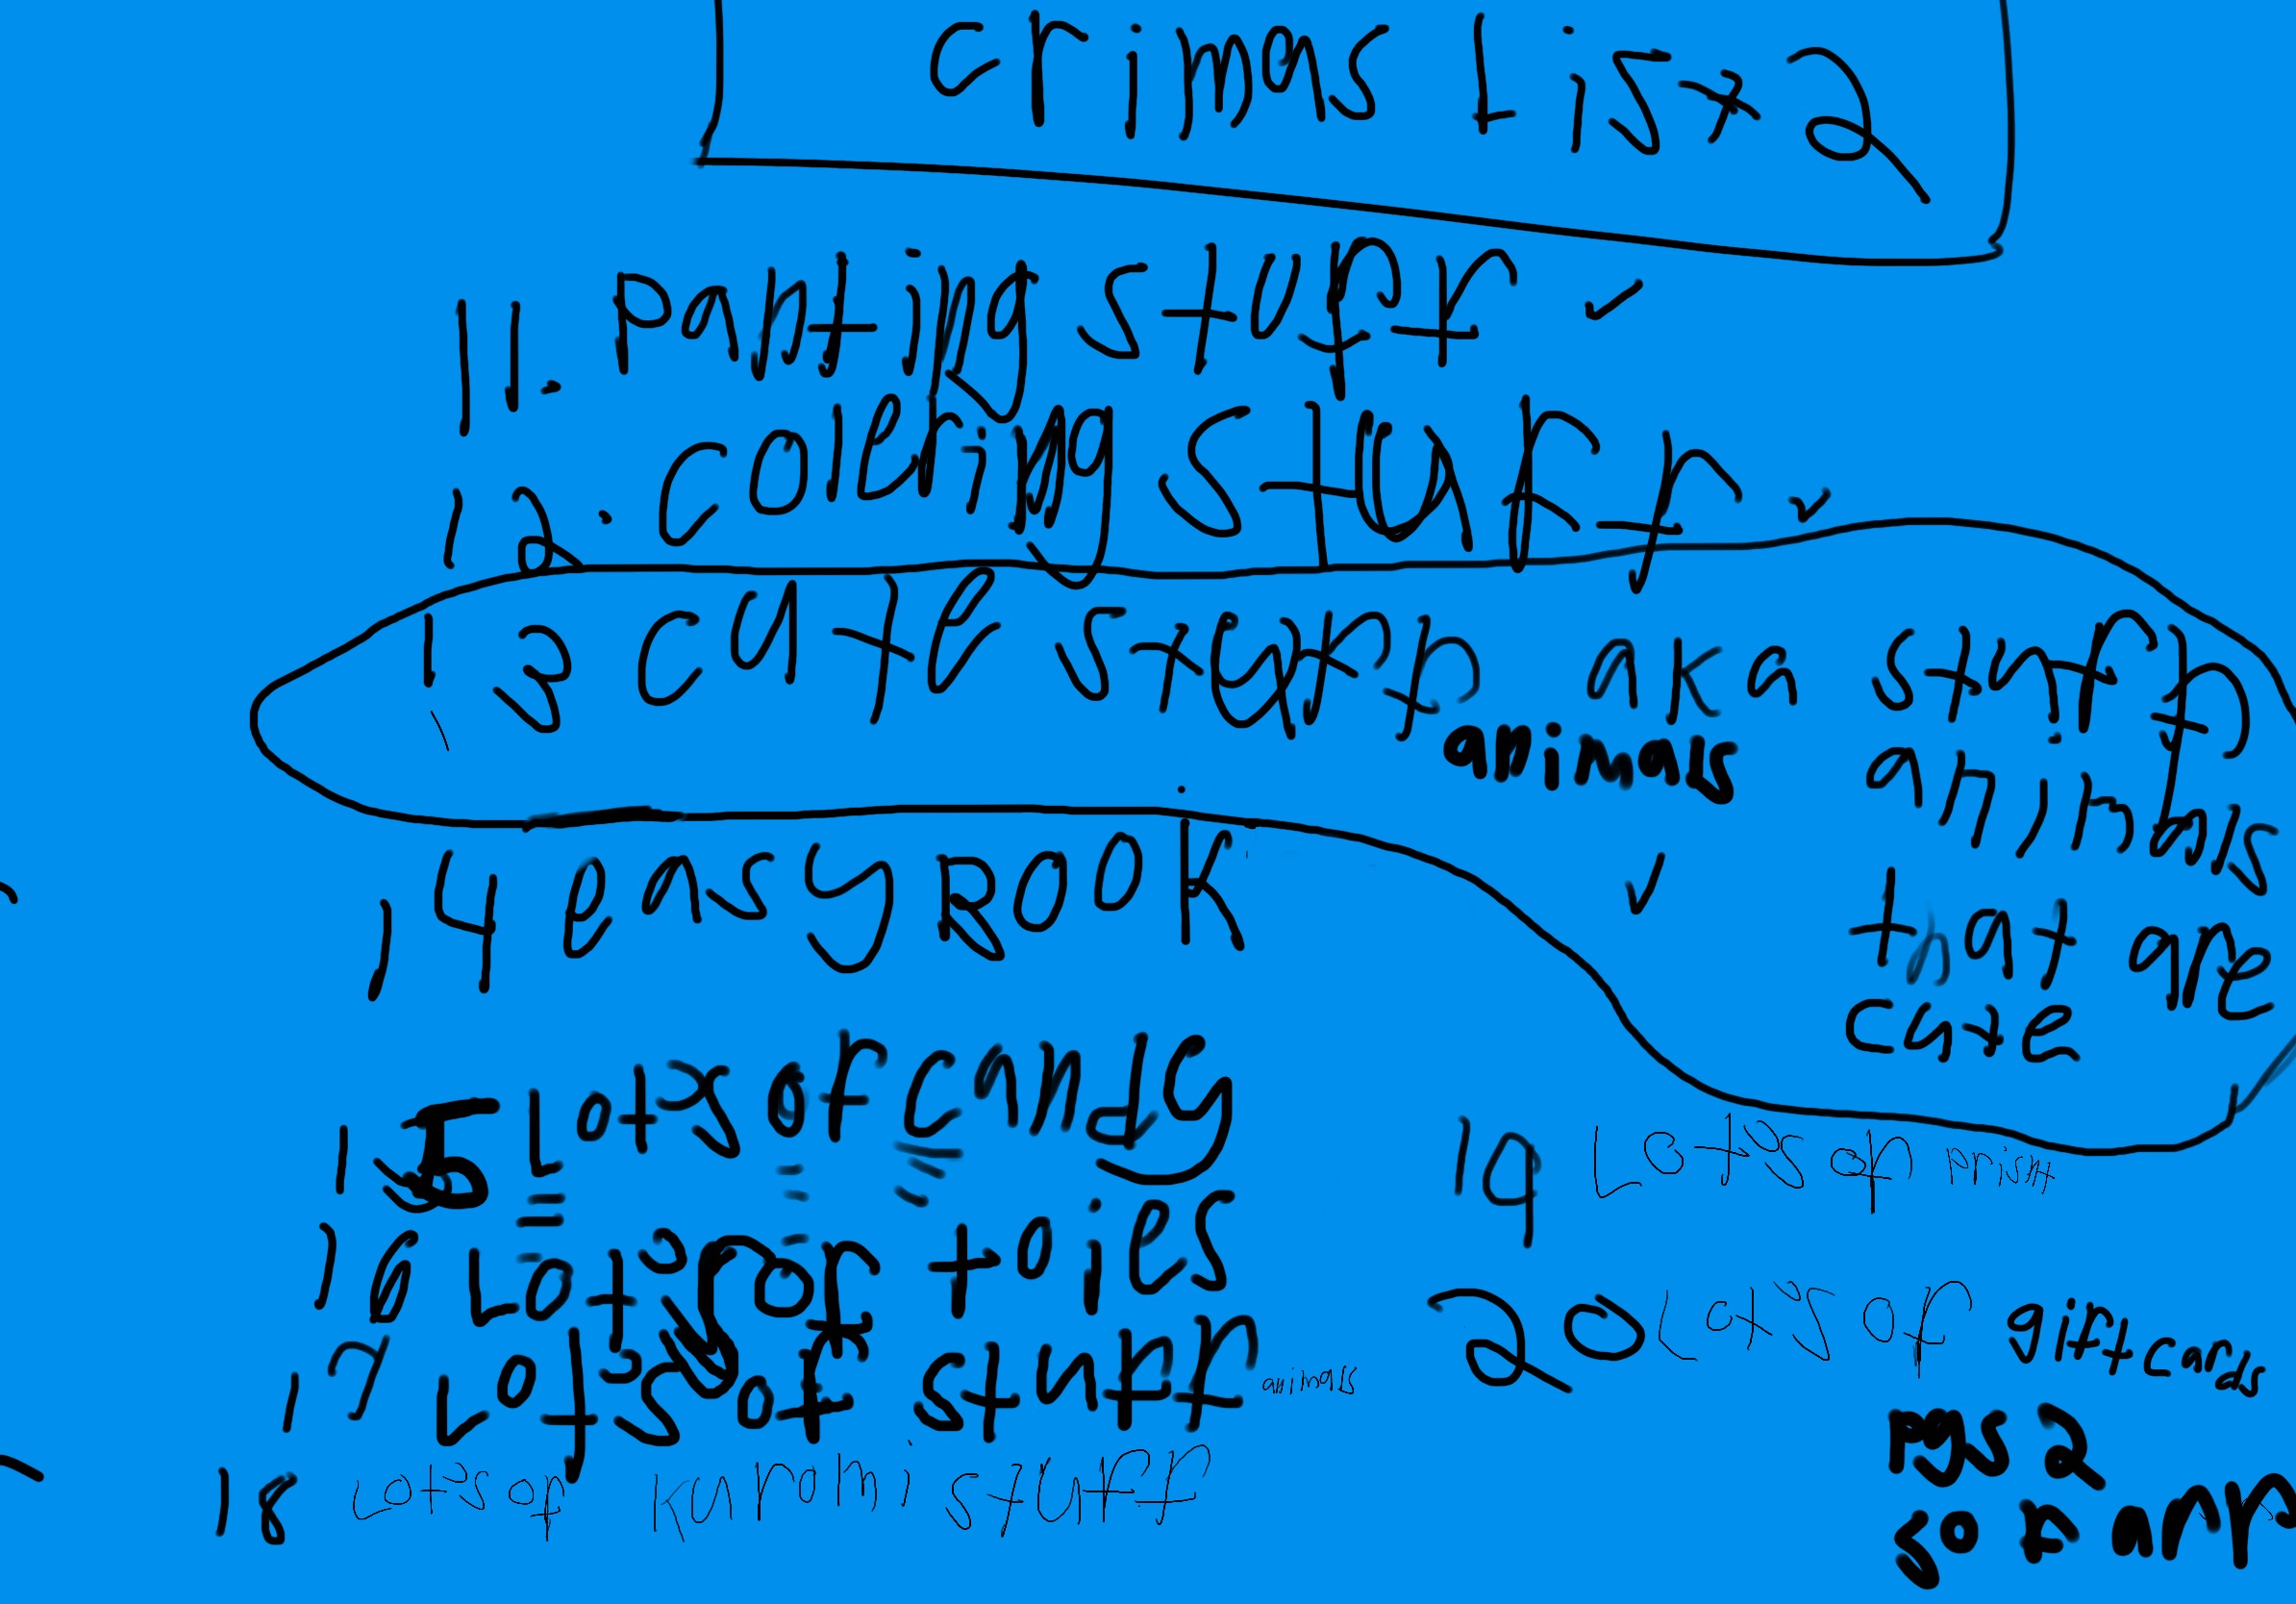 crimas List 2
11. panting stuff ✓
12. colering stuff ✓
13 cute stuff animals aka stuff animals that are cute ✓
14 easy Book
15 Lots of candy
16 Lots of toies
17 Lots of stuff animals
18 Lots of kuromi stuff
19 Lots of
20 Lots of gift cards
pgs 2
so